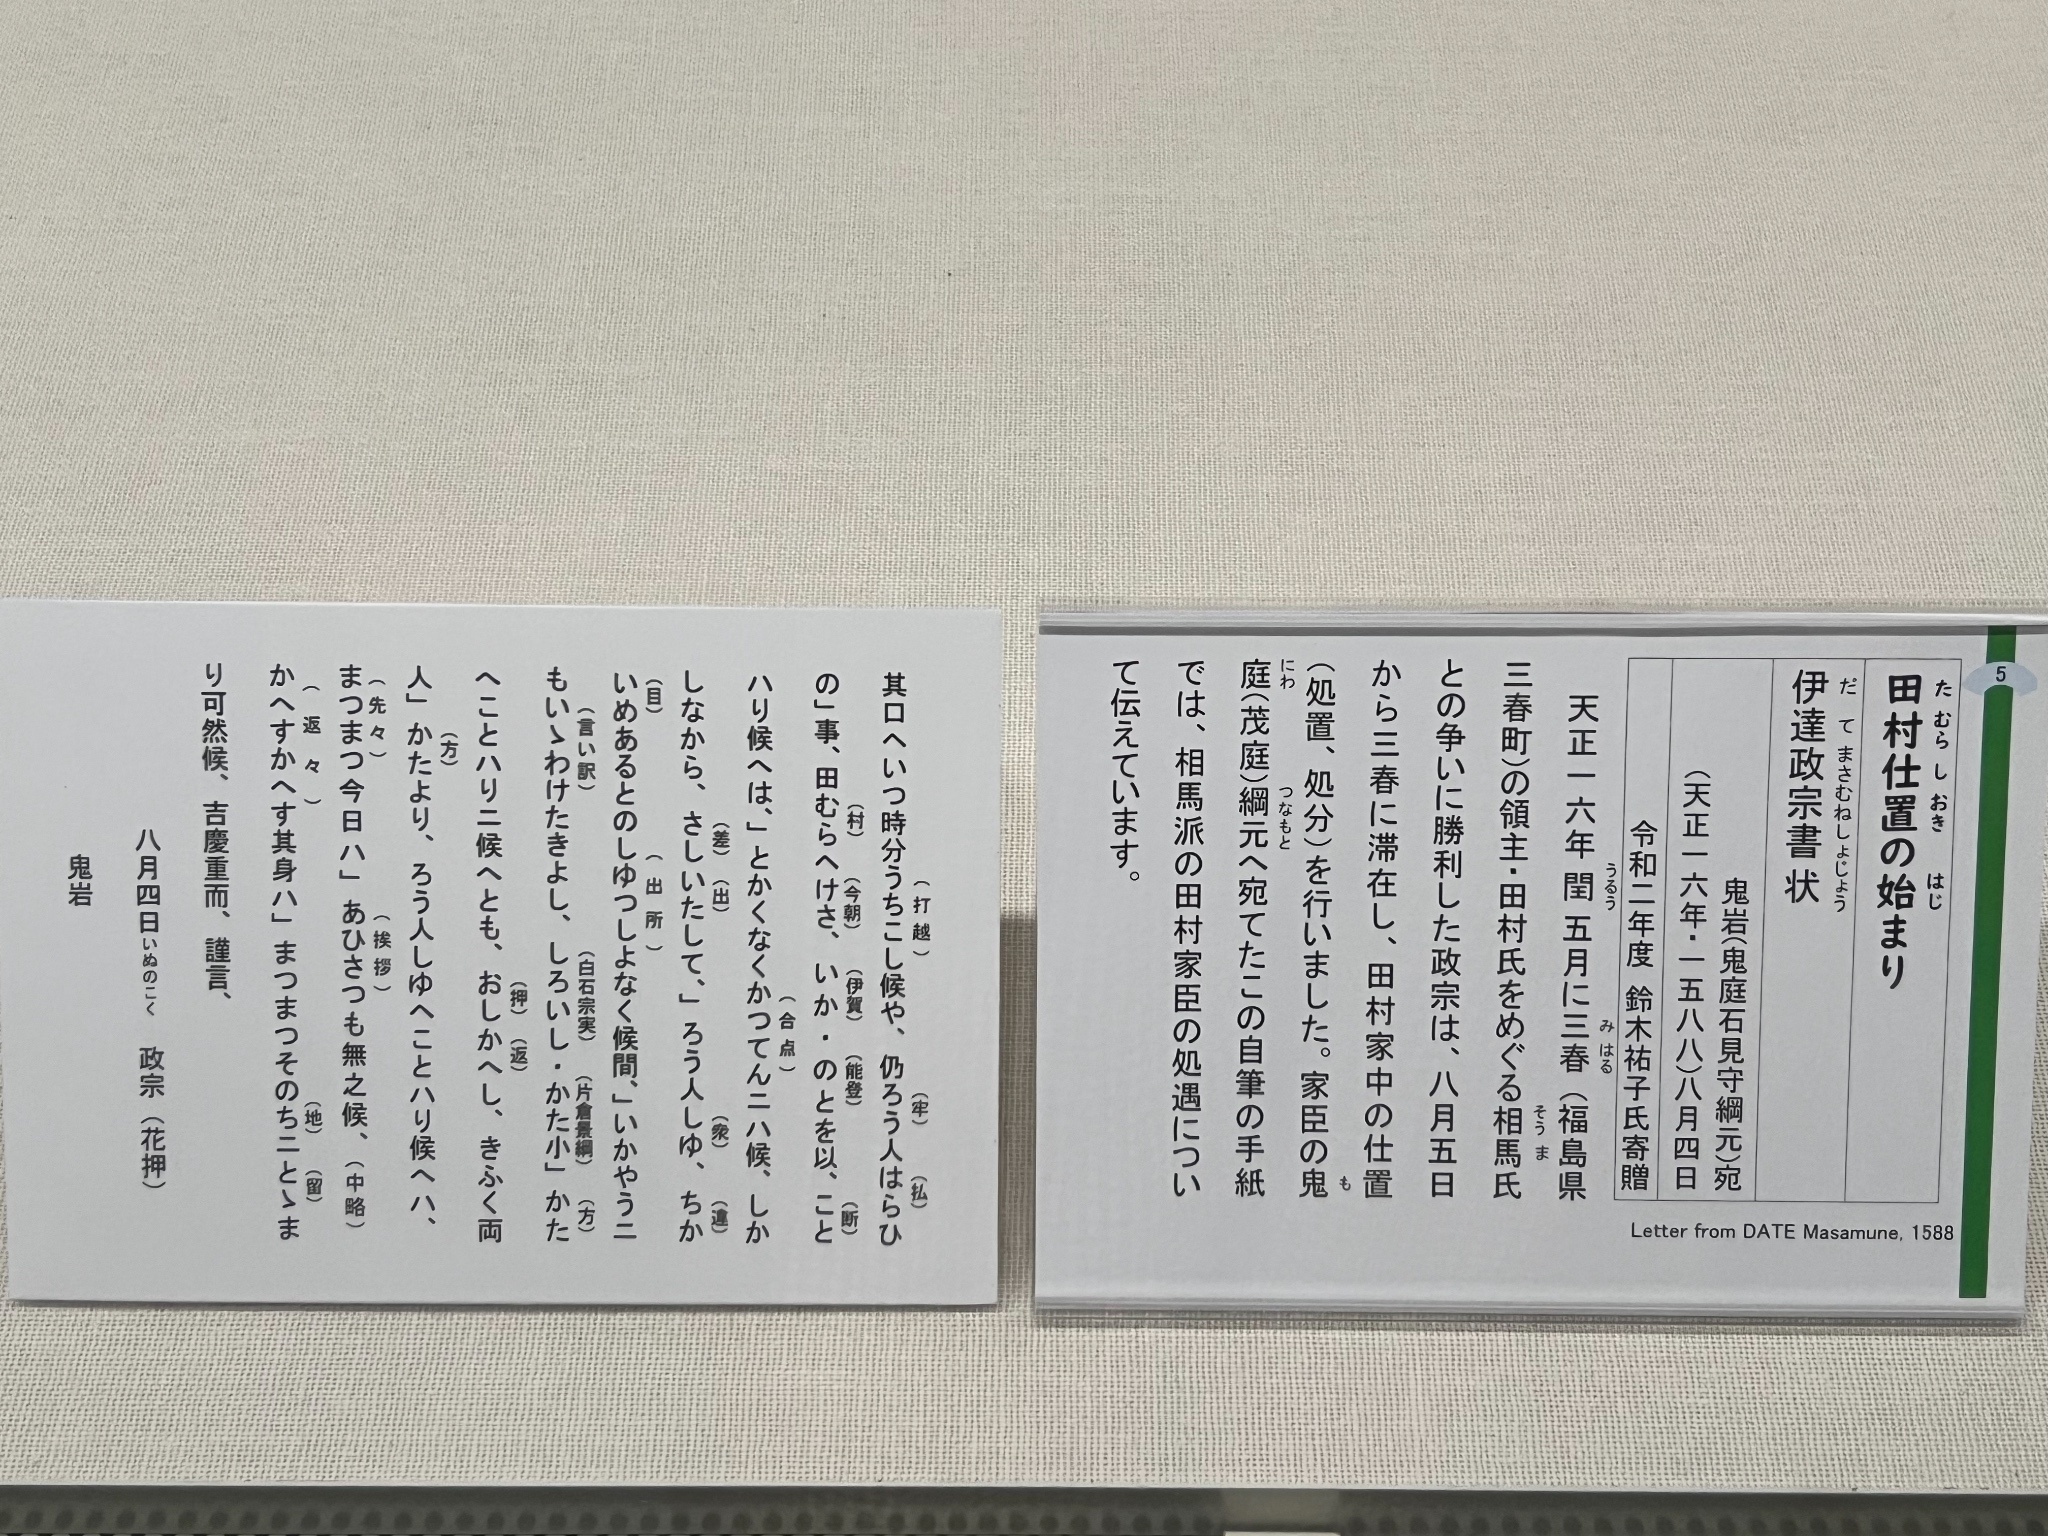 5
田村仕置の始まり
たむらしおき はじ
伊達政宗書状
だてまさむねしょじょう
鬼岩(鬼庭石見守綱元)宛
(天正一六年・一五八八)八月四日
令和二年度 鈴木祐子氏寄贈
Letter from DATE Masamune, 1588
天正一六年閏五月に三春(福島県
うるう みはる
三春町)の領主・田村氏をめぐる相馬氏
そうま
との争いに勝利した政宗は、八月五日
から三春に滞在し、田村家中の仕置
(処置、処分)を行いました。家臣の鬼
も
庭(茂庭)綱元へ宛てたこの自筆の手紙
にわ つなもと
では、相馬派の田村家臣の処遇につい
て伝えています。
其口へいつ時分うちこし候や、仍ろう人はらひ
(打越) (牢) (払)
の」事、田むらへけさ、いか・のとを以、こと
(村) (今朝) (伊賀) (能登) (断)
ハり候へは、」とかくなくかつてんニハ候、しか
(合点)
しなから、さしいたして、」ろう人しゆ、ちか
(差) (出) (衆) (違)
いめあるとのしゆつしよなく候間、」いかやうニ
(目) (出所)
もいゝわけたきよし、しろいし・かた小」かた
(言い訳) (白石宗実) (片倉景綱) (方)
へことハりニ候へとも、おしかへし、きふく両
(押) (返)
人」かたより、ろう人しゆへことハり候へハ、
(方)
まつまつ今日ハ」あひさつも無之候、(中略)
(先々) (挨拶)
かへすかへす其身ハ」まつまつそのちニとゝま
(返々) (地) (留)
り可然候、吉慶重而、謹言、
八月四日いぬのこく 政宗(花押)
鬼岩